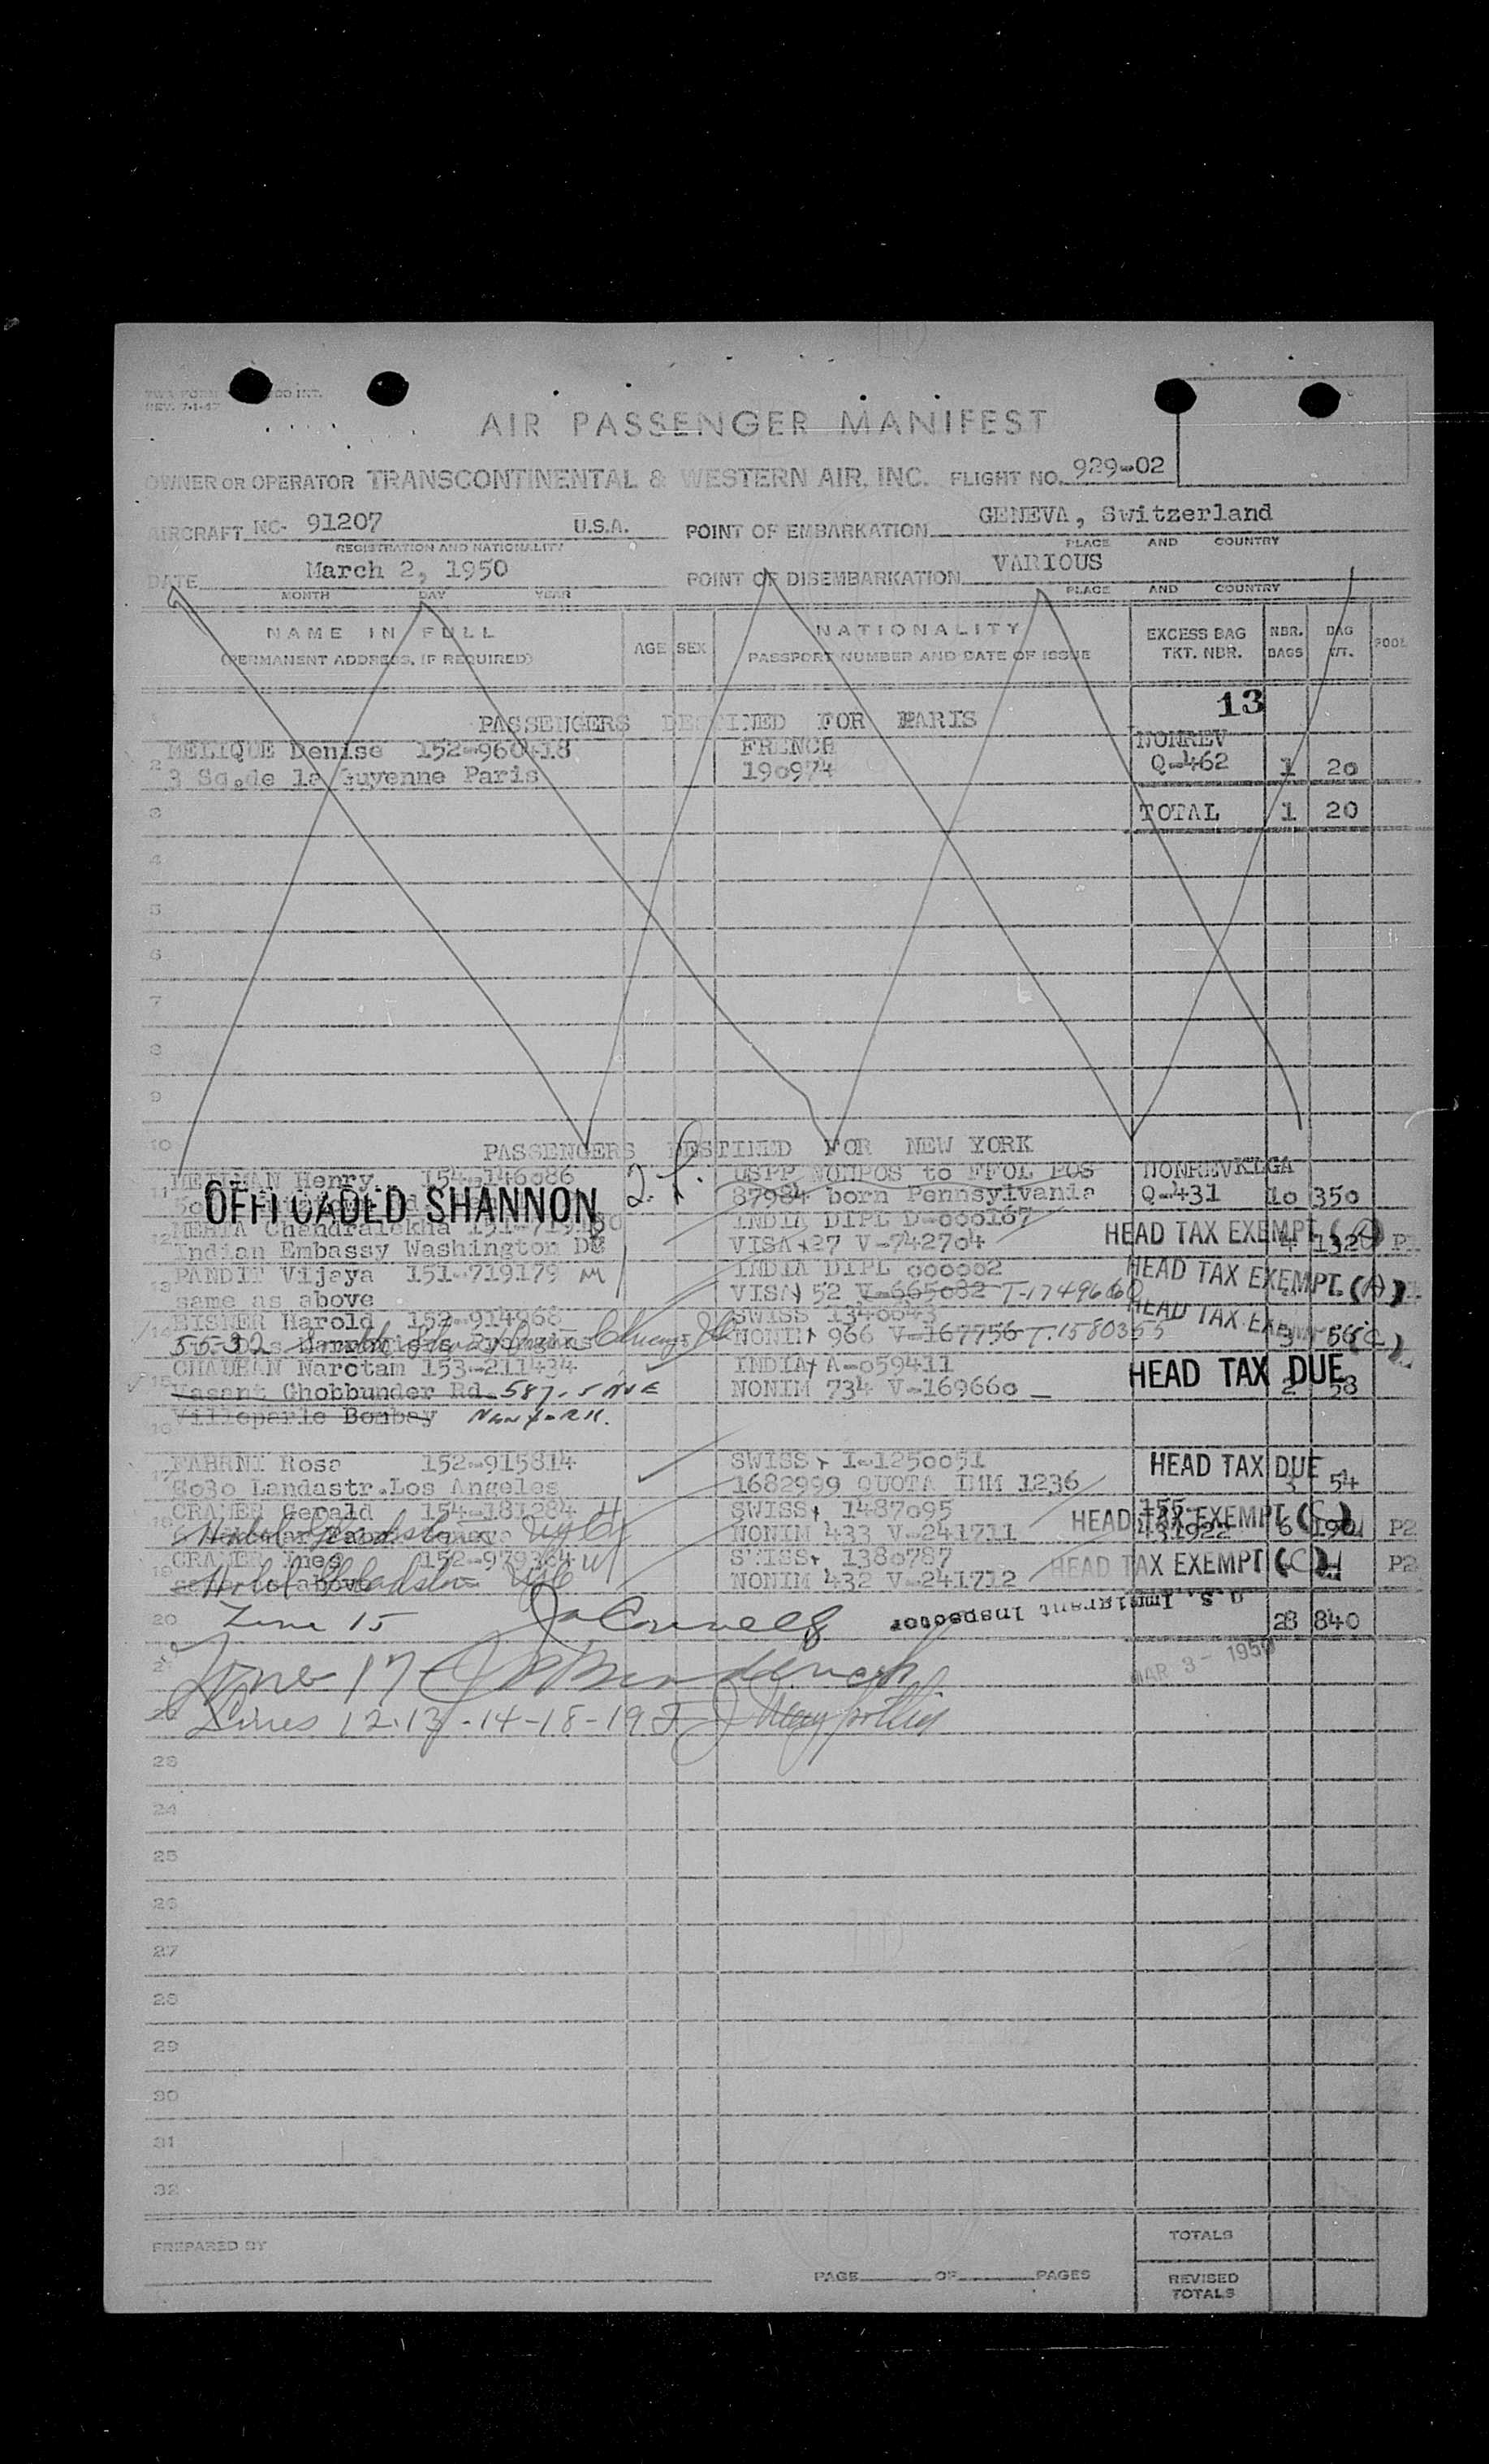 TWA FORM
REV. 7-1-47
AIR PASSENGER MANIFEST
OWNER OR OPERATOR TRANSCONTINENTAL & WESTERN AIR, INC. FLIGHT NO. 929-02
AIRCRAFT NC- 91207 U.S.A. POINT OF EMBARKATION GENEVA, Switzerland
REGISTRATION AND NATIONALITY PLACE AND COUNTRY
DATE March 2, 1950 POINT OF DISEMBARKATION VARIOUS
MONTH DAY YEAR PLACE AND COUNTRY
NAME IN FULL (PERMANENT ADDRESS, IF REQUIRED) AGE SEX NATIONALITY PASSPORT NUMBER AND DATE OF ISSUE EXCESS BAG TKT. NBR. NBR. BAGS BAG WT. POOL
13
PASSENGERS DESTINED FOR PARIS
MELIQUE Denise 152-960418 FRENCH NONREV
2 3 Sq.de la Guyenne Paris 190974 Q-462 1 20
3 TOTAL 1 20
4
5
6
7
8
9
10 PASSENGERS DESTINED FOR NEW YORK
Henry. 154-146086 USPP NONPOS to FFOL POS NONREVKLGA
11 OFFLOADED SHANNON 87984 born Pennsylvania Q-431 10 350
MEHTA Chandralekha INDIA DIPL D-000167
12 Indian Embassy Washington DC VISA 27 V-742704 HEAD TAX EXEMPT (A) 4 132
PANDIT Vijaya 151-719179 M INDIA DIPL 000002
13 same as above VISA 52 V-665082 T-1749660 HEAD TAX EXEMPT. (A)
EISNER Harold 152-914968 SWISS 1340643
14 5532 NONIM 966 V-167756 T.1580355 HEAD TAX EXEMPT (C) 3 56
CHAUHAN Narotam 153-211434 INDIA A-059411
15 Vasant Chobbunder Rd. 587-5 AVE NONIM 734 V-169660 HEAD TAX DUE 2 58
16 Villeparle Bombay NEW YORK.
FAHRNI Rosa 152-915814 SWISS I-1250051 HEAD TAX DUE
17 8030 Landastr.Los Angeles 1682999 QUOTA IMM 1236 3 54
CRAMER Gerald 154-181284 H SWISS 1487095 155-
18 Hotel Gladstone NONIM 433 V-241711 HEAD TAX EXEMPT (C) 431922 6 190 P2
CRAMER Ines 152-979364 W SWISS 1380787
19 same as above Hotel Gladstone NONIM 432 V-241712 HEAD TAX EXEMPT (C) P2
20 Line 15 U. S. Immigrant Inspector 28 840
21 Line 17 MAR 3 - 1950
22 Lines 12-13-14-18-19
23
24
25
26
27
28
29
30
31
32
PREPARED BY TOTALS
PAGE OF PAGES REVISED TOTALS